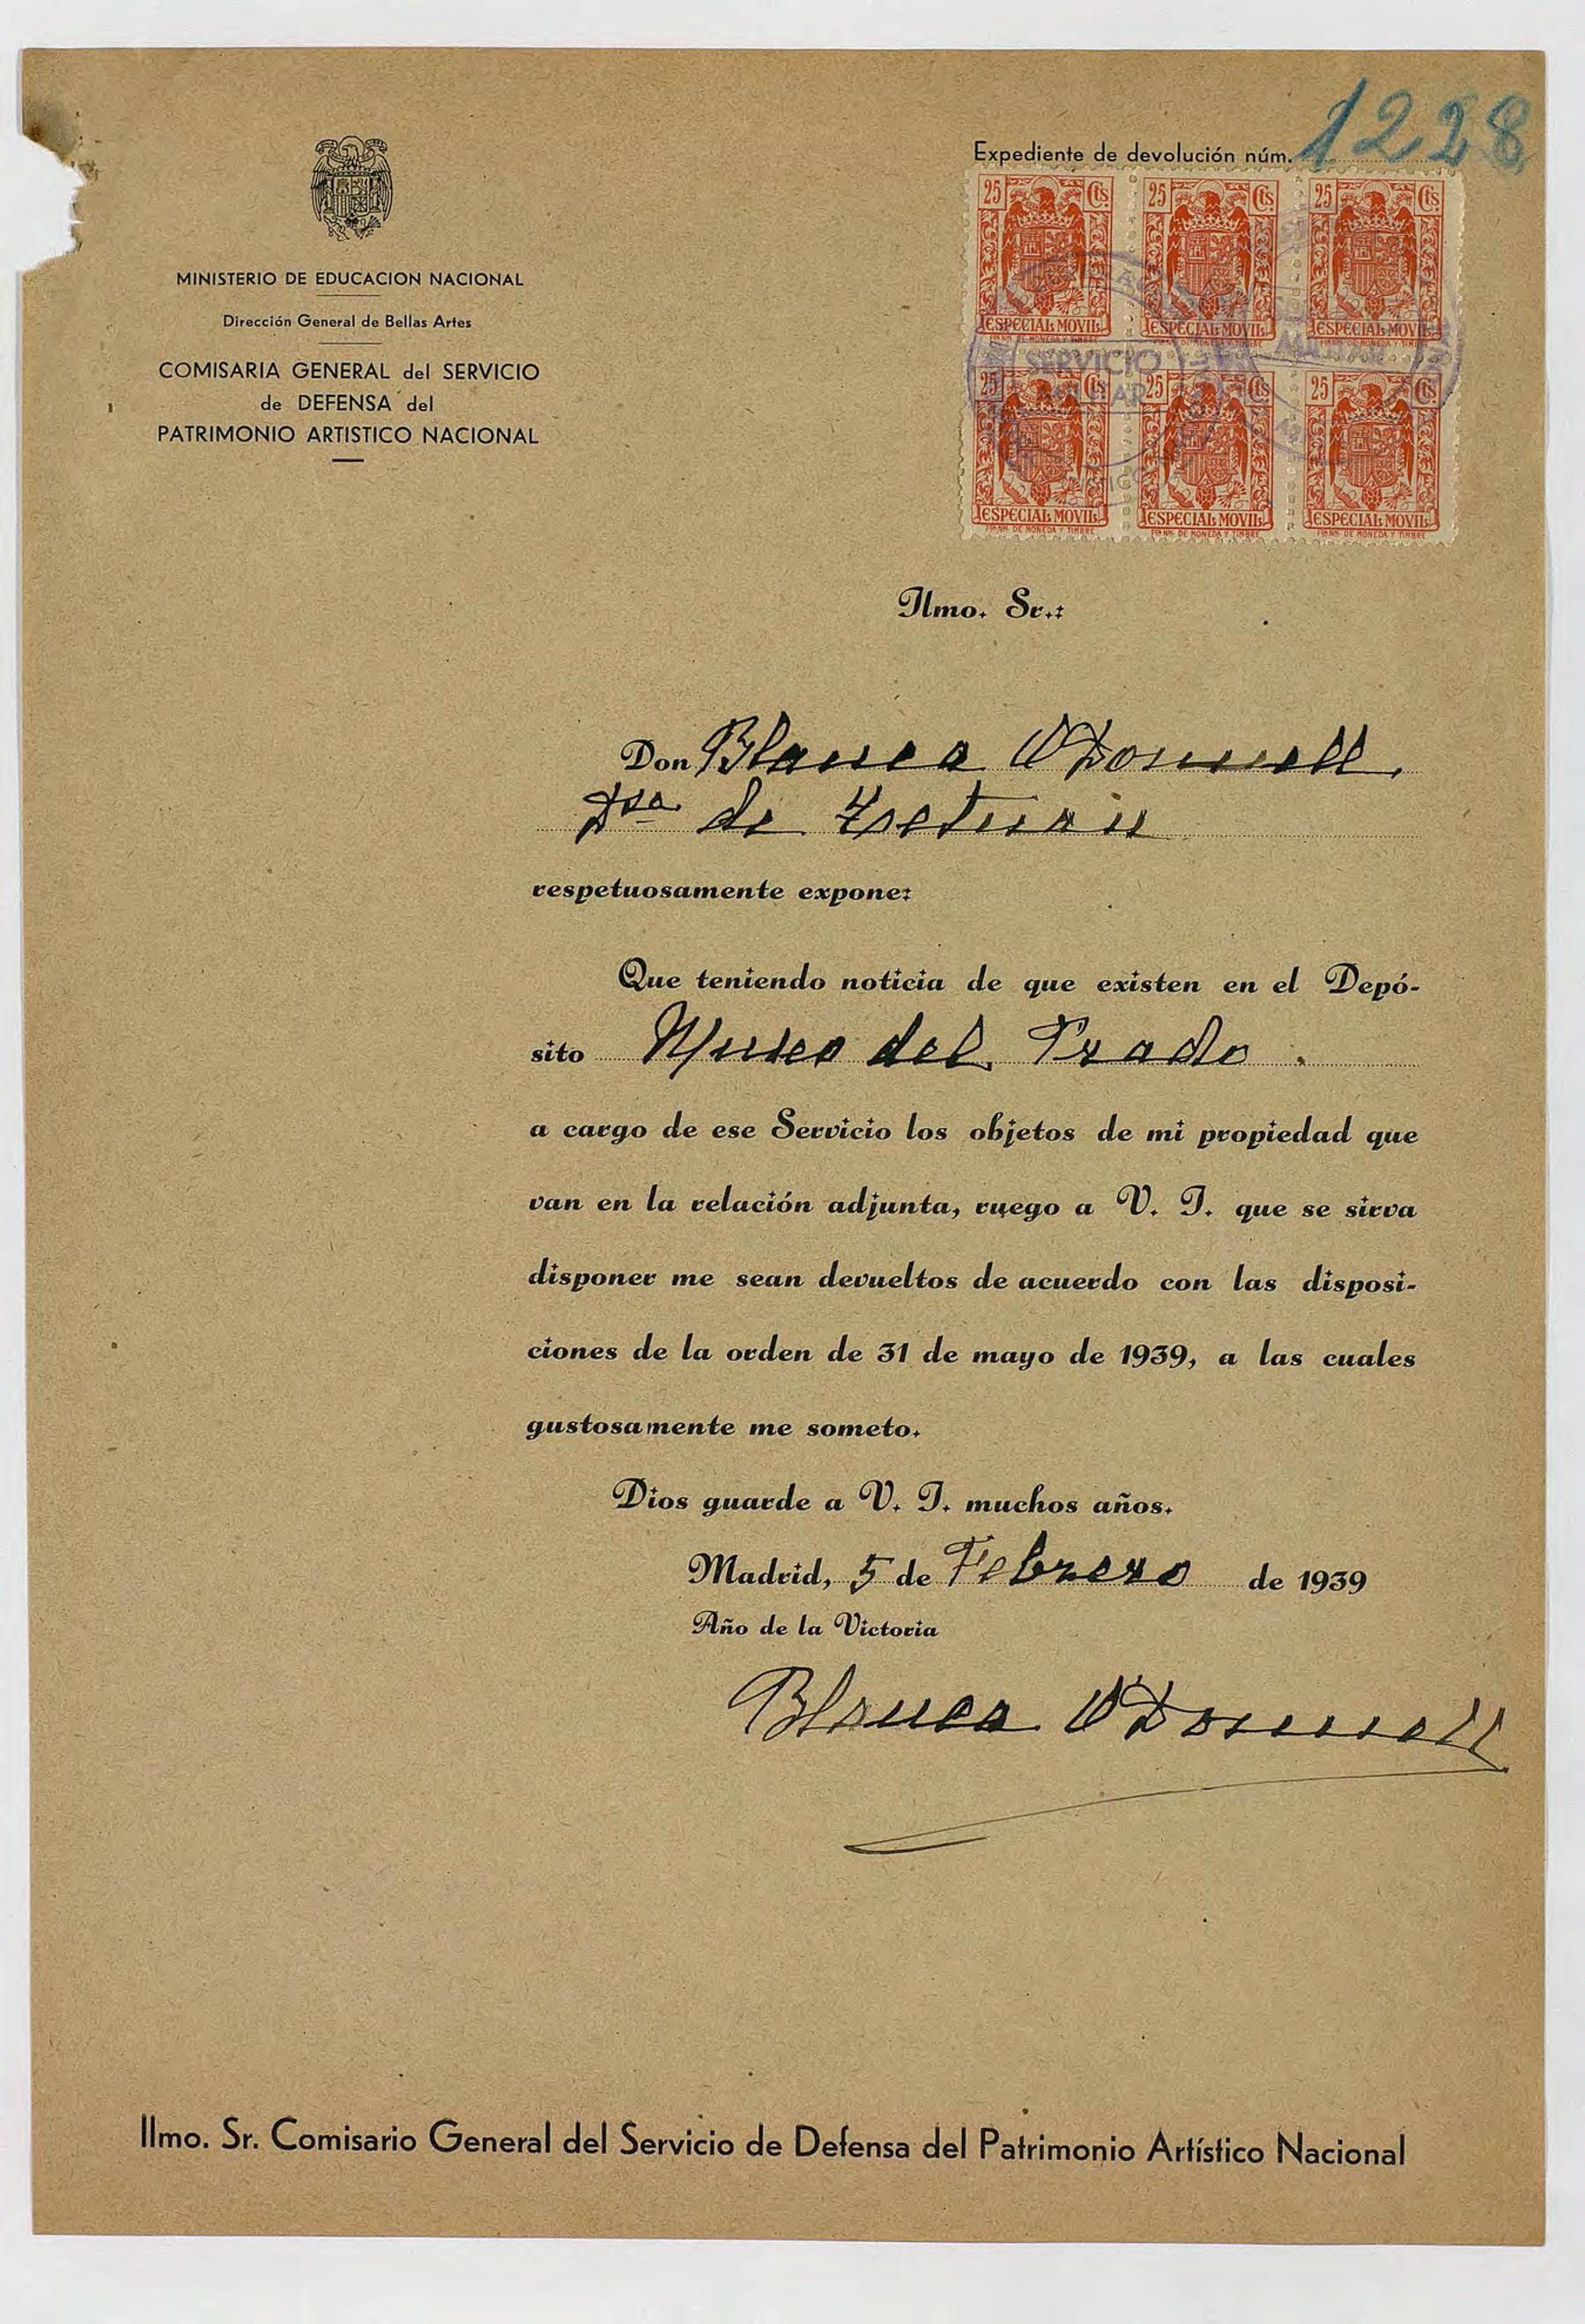 Expediente de devolución núm. 1228
MINISTERIO DE EDUCACION NACIONAL
Dirección General de Bellas Artes
COMISARIA GENERAL del SERVICIO
de DEFENSA del
PATRIMONIO ARTISTICO NACIONAL
25 Cts. 25 Cts. 25 Cts.
ESPECIAL MOVIL ESPECIAL MOVIL ESPECIAL MOVIL
SERVICIO
25 Cts. 25 Cts. 25 Cts.
ESPECIAL MOVIL ESPECIAL MOVIL ESPECIAL MOVIL
DE MONEDA Y TIMBRE DE MONEDA Y TIMBRE DE MONEDA Y TIMBRE
Ilmo. Sr.:
Don Blanca O'Donnell,
Dsa de Tetuán
respetuosamente expone:
Que teniendo noticia de que existen en el Depó-
sito Museo del Prado.
a cargo de ese Servicio los objetos de mi propiedad que
van en la relación adjunta, ruego a V. I. que se sirva
disponer me sean devueltos de acuerdo con las disposi-
ciones de la orden de 31 de mayo de 1939, a las cuales
gustosamente me someto.
Dios guarde a V. I. muchos años.
Madrid, 5 de Febrero de 1939
Año de la Victoria
Blanca O'Donnell
Ilmo. Sr. Comisario General del Servicio de Defensa del Patrimonio Artístico Nacional